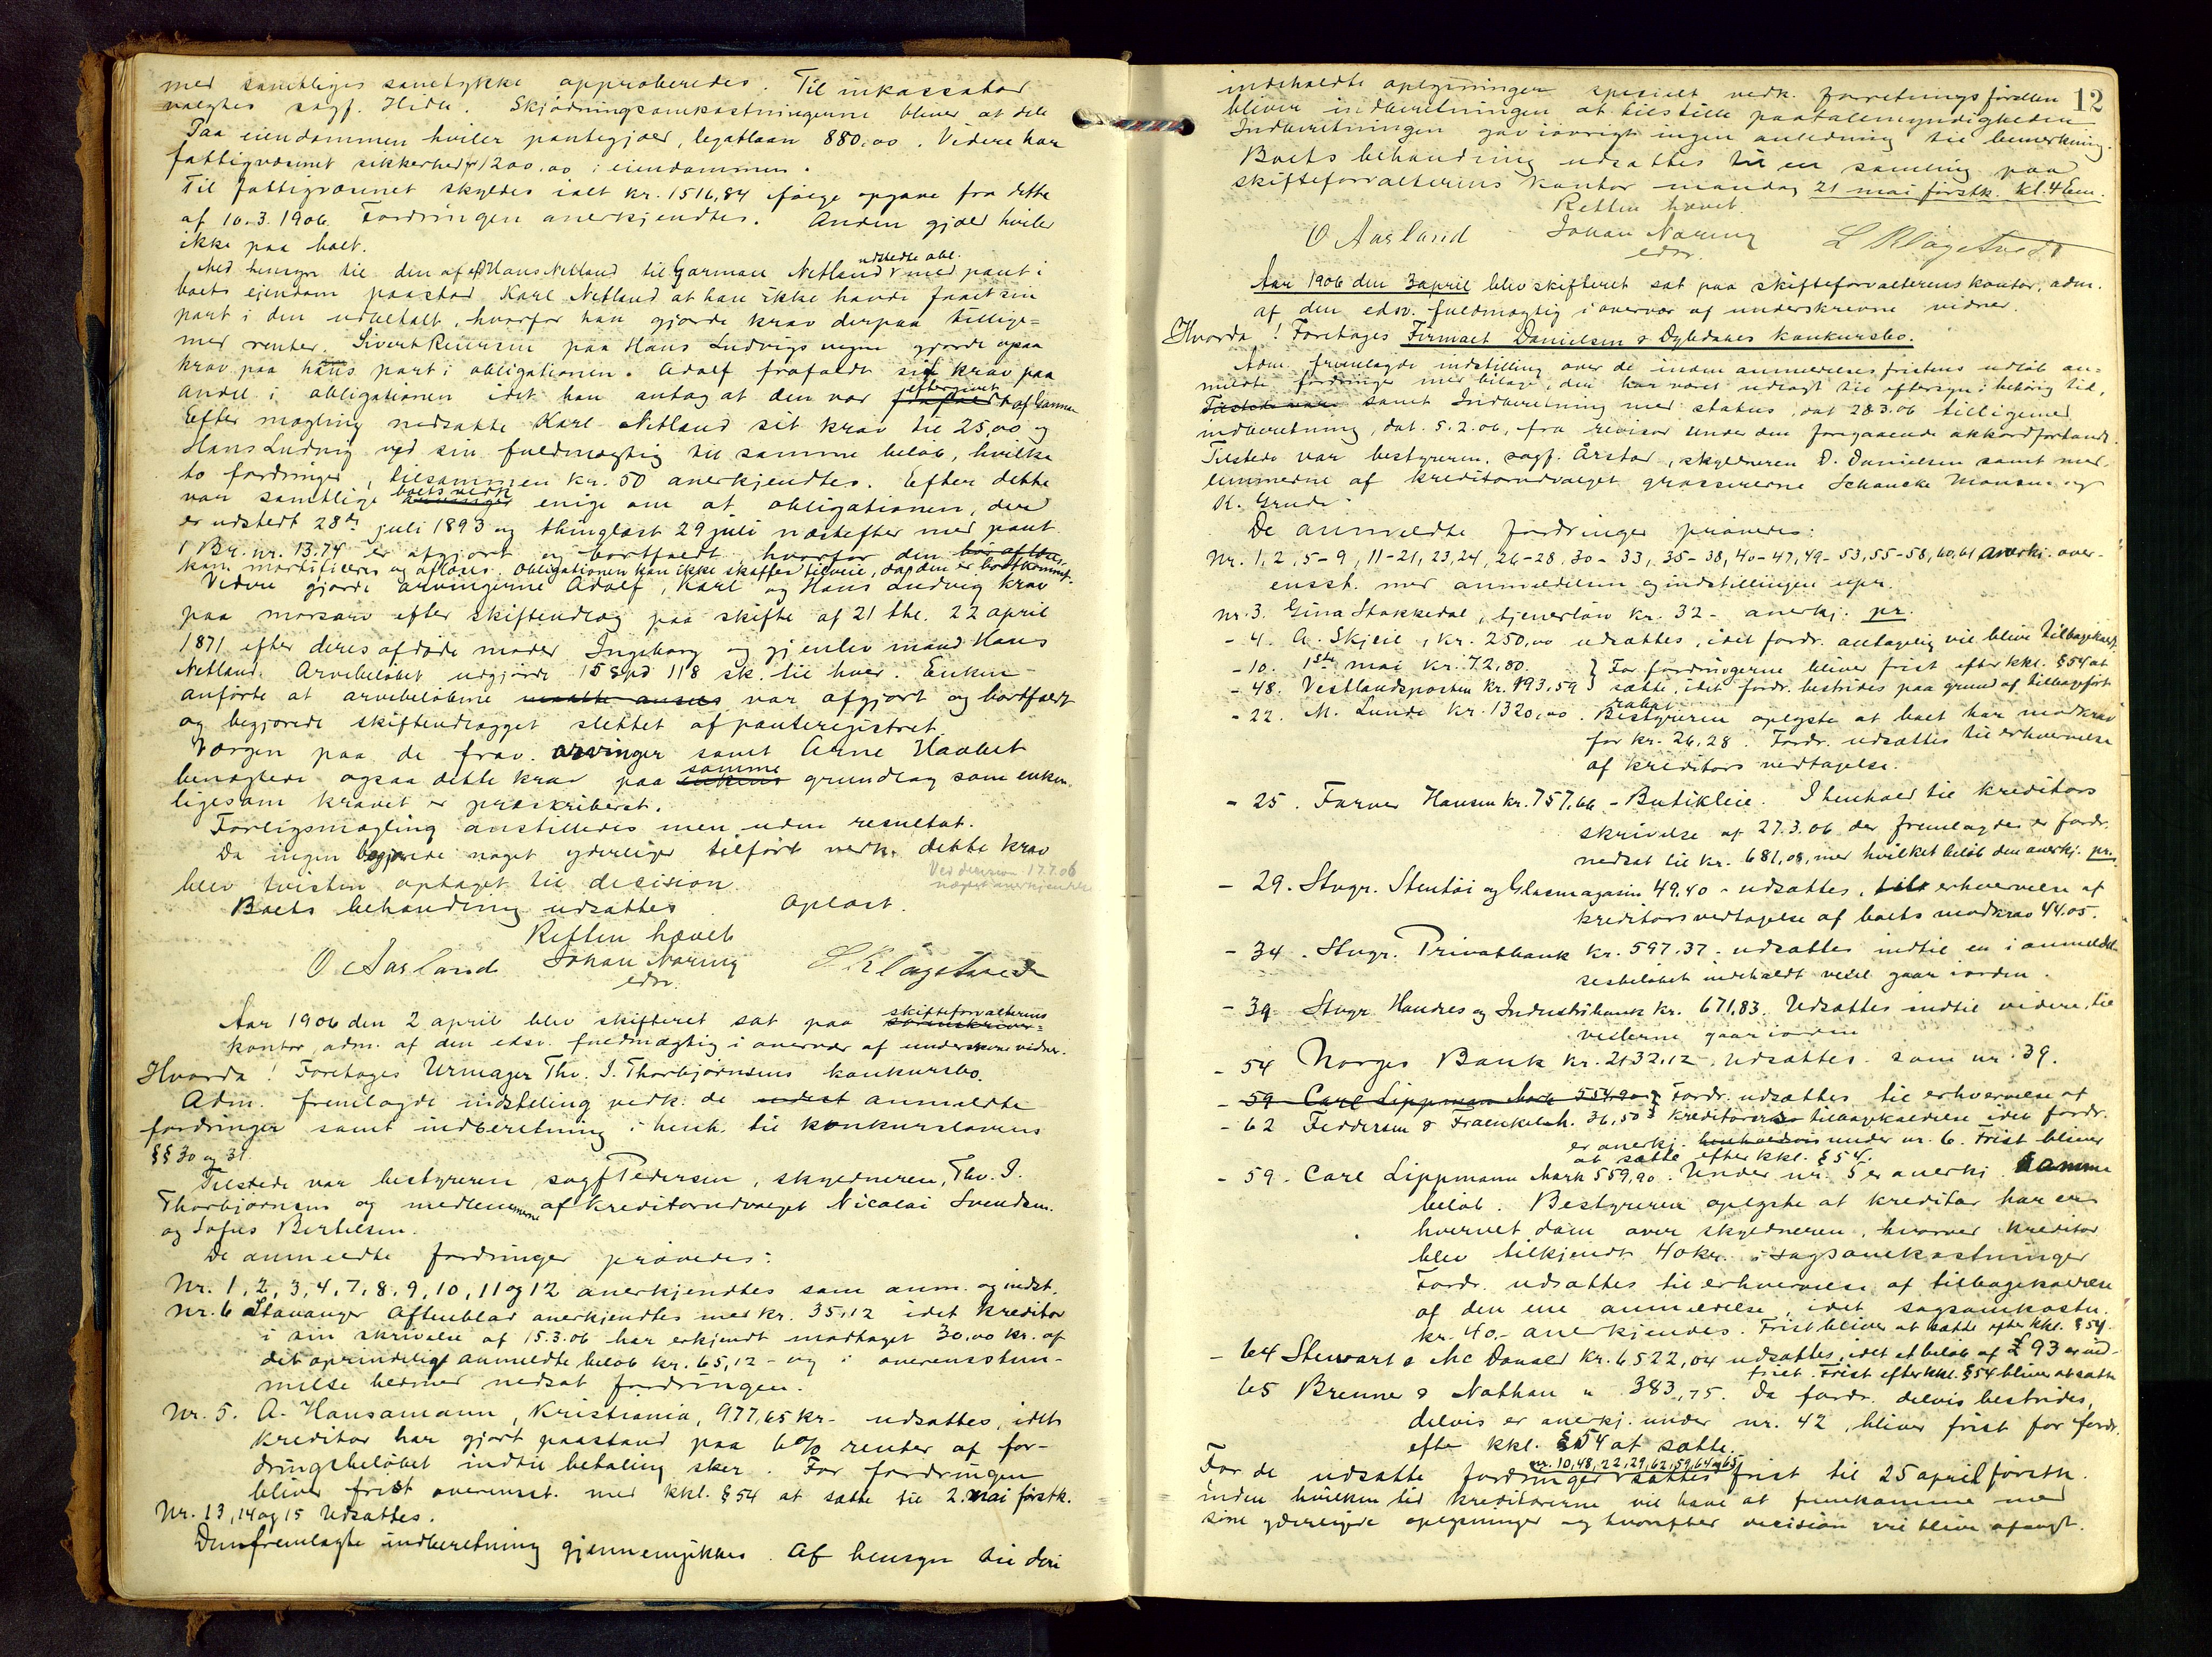 med samtliges samtykke approberedes. Til inkassator
valgtes sagf. Hidle. Skjødningsomkostningerne bliver at dele
Paa eiendommen hviler pantegjæld, legatlaan 880,00. Videre har
fattigvæsenet sikkerhed for 1200,00 i eiendommen.
Til fattigvæsenet skyldes ialt kr. 1516,84 ifølge opgave fra dette
af 10.3.1906. Fordringen anerkjendtes. Anden gjæld hviler
ikke paa boet.
Med hensyn til den af Hans Netland til Gorman Netland udstedte obl. med pant i
boets eiendom paastod Karl Netland at han ikke havde faaet sin
part i den udbetalt, hvorfor han gjorde krav derpaa tillige=
med renter. Sivert Reiersen paa Hans Ludvigs vegne gjorde ogsaa
krav paa hans part i obligationen. Adolf frafaldt sit krav paa
andel i obligationen idet han antog at den var eftergivet af Gorman
Efter mægling nedsatte Karl Netland sit krav til 25,00 og
Hans Ludvig ved sin fuldmægtig til samme beløb, hvilke
to fordringer, tilsammen kr. 50 anerkjendtes. Efter dette
var samtlige boets vedk. enige om at obligationen, der
er udstedt 28de juli 1893 og thinglæst 29 juli næstefter med pant
i Br. nr. 13.74 er afgjort og bortfaldt hvorfor den bør aflæs.
kan mortificeres og aflæses. Obligationen kan ikke skaffes tilveie, da den er bortkommet.
Videre gjorde arvingerne Adolf, Karl og Hans Ludvig krav
paa morsarv efter skifteudlæg paa skifte af 21 thl. 22 april
1871 efter deres afdøde moder Ingeborg og gjenlev. mand Hans
Netland. Arvebeløbet udgjorde 15 Spd 118 sk. til hver. Enken
anførte at arvebeløbene maatte ansees var afgjort og bortfaldt
og begjærede skifteudlægget slettet af panteregistret.
Værgen paa de frav. arvinger samt Arne Haabet
benægtede ogsaa dette krav paa samme grundlag som enken
ligesom kravet er præskriberet.
Forligsmægling anstilledes men uden resultat.
Da ingen begjærede noget yderligere tilført vedk. dette krav
blev tvisten optaget til decision. Ved decision 17.7.06
nægtet anerkjendelse
Boets behandling udsattes. Oplæst.
Retten hævet
O Aarland Johan Næring L Klagetvedt
edsv.
Aar 1906 den 2 april blev skifteret sat paa skifteforvalterens
kontor, adm. af den edsv. fuldmægtig i overvær af underskrevne vidner.
Hvorda! Foretages Urmager Thv. I. Thorbjørnsens konkursbo.
Adm. fremlagde indstilling vedk. de anmeldte
fordringer samt indberetning i henh. til konkurslovens
§§ 30 og 31
Tilstede var bestyreren, sagf Pedersen, skyldneren, Thv. I.
Thorbjørnsen og medlemmerne af kreditorudvalget Nicolai Svendsen
og Sofus Bertelsen.
De anmeldte fordringer prøvedes:
Nr. 1, 2, 3, 4, 7, 8, 9, 10, 11 og 12 anerkjendtes som anm. og indst.
Nr. 6 Stavanger Aftenblad anerkjendtes med kr. 35,12 idet kreditor
i sin skrivelse af 15.3.06 har erkjendt modtaget 30,00 kr. af
det oprindelige anmeldte beløb kr. 65,12 - og i overensstem-
melse hermed nedsat fordringen.
Nr. 5. A. Hansamann, Kristiania, 977,65 kr. udsattes, idet
kreditor har gjort paastand paa 6% renter af for-
dringsbeløbet indtil betaling sker. For fordringen
bliver frist overensst. med kkl. § 54 at sætte til 2. mai førstk.
Nr. 13, 14 og 15 Udsattes.
Den fremlagte indberetning gjennemgikkes. Af hensyn til deri
12
indeholdte oplysninger specielt vedk. forretningsførslen
bliver indberetningen at tilstille paatalemyndigheden
Indberetningen gav iøvrigt ingen anledning til bemerkning.
Boets behandling udsattes til en samling paa
skifteforvalterens kontor mandag 21 mai førstk. kl. 4 Em.
Retten hævet.
O Aarland Johan Næring L Klagetvedt
edsv.
Aar 1906 den 3 april blev skifteret sat paa skifteforvalterens kontor, adm.
af den edsv. fuldmægtig i overvær af underskrevne vidner
Hvorda! Foretages Firmaet Danielsen & Dybdahls konkursbo.
Adm. fremlagde indstilling over de inden anmeldelsesfristens udløb an-
meldte fordringer med bilage, der har været udlagt til eftersyn i behørig tid,
Tilstede var samt Indberetning med status, dat 28.3.06 tilligemed
indberetning, dat. 5.2.06, fra revisor under den foregaaende akkordforhandl.
Tilstede var bestyreren, sagf. Årstad, skyldneren D. Danielsen samt med-
lemmerne af kreditorudvalget grossererne Schancke Monsen og
K. Grude
De anmeldte fordringer prøvedes:
Nr. 1, 2, 5-9, 11-21, 23, 24, 26-28, 30-33, 35-38, 40-47, 49-53, 55-58, 60, 61 anerkj. over-
ensst. med anmeldelsen og indstillingen upr.
Nr. 3. Gina Stakkedal, tjenerløn kr. 32 - anerkj. pr.
- 4. A. Skjeie, kr. 250,00 udsattes, idet fordr. antagelig vil blive tilbagekaldt.
- 10. 1ste mai kr. 72,80. } For fordringerne bliver frist efter kkl. § 54 at
- 48. Vestlandsposten kr. 193,59 } sætte, idet fordr. bestrides paa grund af tilbageført
rabat
- 22. M. Lunde kr. 1320,00. Bestyreren oplyste at boet har modkrav
for kr. 26,28. Fordr. udsattes til erhvervelse
af kreditors vedtagelse.
- 25. Farver Hansen kr. 757,66 - Butikleie. I henhold til kreditors
skrivelse af 27.3.06 der fremlagdes er fordr.
nedsat til kr. 681,08, med hvilket beløb den anerkj. pr.
- 29. Stvgr. Stentøi og Glasmagasin 49,40 - udsattes, til erhvervelse af
kreditors vedtagelse af boets modkrav 44,05.
- 34. Stvgr. Privatbank kr. 597,37. udsattes indtil en i anmeldel-
sesbeløbet indeholdt veksel gaar iorden.
- 39 Stvgr Handels og Industribank kr. 671,83. Udsattes indtil videre, til
vekslerne gaar iorden
- 54 Norges Bank kr. 2132,12. udsattes som nr. 39.
- 59 Carl Lippmann Mark 559,90 } Fordr. udsattes til erhvervelse af
- 62 Feddersen & Fraenkel m. 36,50 } kreditorers tilbagekaldelse idet fordr.
er anerkj. under nr. 6. Frist bliver
at sætte efter kkl. § 54.
- 59. Carl Lippmann Mark 559,90. Under nr. 5 er anerkj. samme
beløb. Bestyreren oplyste at kreditor har er-
hvervet dom over skyldneren, hvorved kreditor
blev tilkjendt 40 kr. i sagsomkostninger
Fordr. udsattes til erhvervelse af tilbagekaldelse
af den ene anmeldelse, idet sagsomkostn.
kr. 40.- anerkjendes. Frist bliver at sætte efter kkl. § 54.
- 64 Stewart & Mc Donald kr. 6522,04 udsattes, idet et beløb af £ 93 er
Frist efter kkl. § 54 bliver at sætte
65 Brenner & Nathan " 383,75. Da fordr. delvis bestrides,
delvis er anerkj. under nr. 42, bliver frist for fordr.
efter kkl. § 54 at sætte.
For de udsatte fordringer nr. 10, 48, 22, 29, 62, 59, 64 og 65 sattes frist til 25 april førstk.
inden hvilken tid kreditorerne vil have at fremkomme med
sine yderligere oplysninger og hvorefter decision vil blive afsagt.